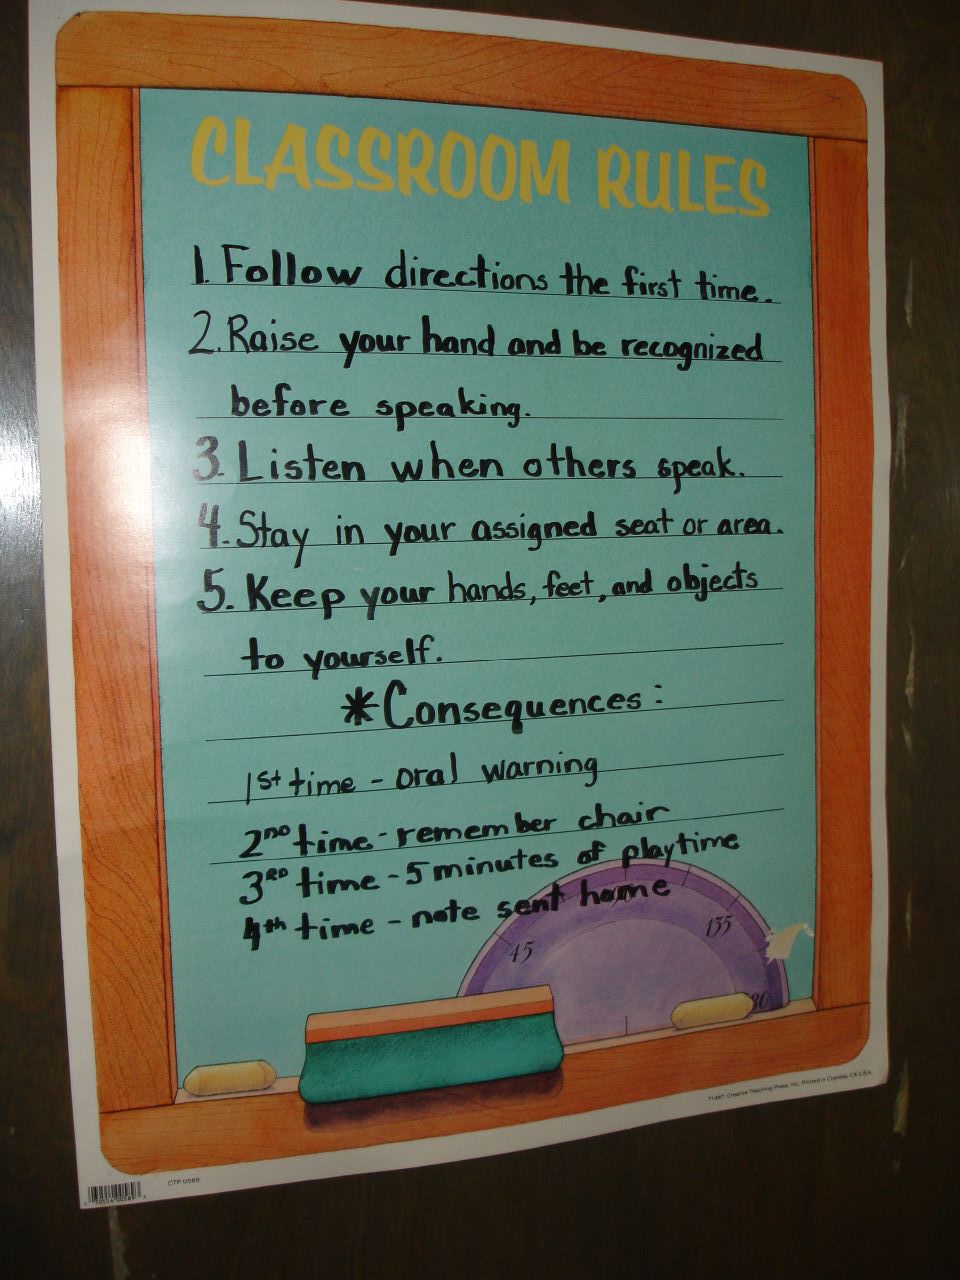 CLASSROOM RULES
1. Follow directions the first time.
2. Raise your hand and be recognized
before speaking.
3. Listen when others speak.
4. Stay in your assigned seat or area.
5. Keep your hands, feet, and objects
to yourself.
*Consequences:
1st time - oral warning
2nd time - remember chair
3RD time - 5 minutes of playtime
4th time - note sent home
45
135
©1987 Creative Teaching Press, Inc., Printed in Cypress, CA U.S.A.
CTP 0589